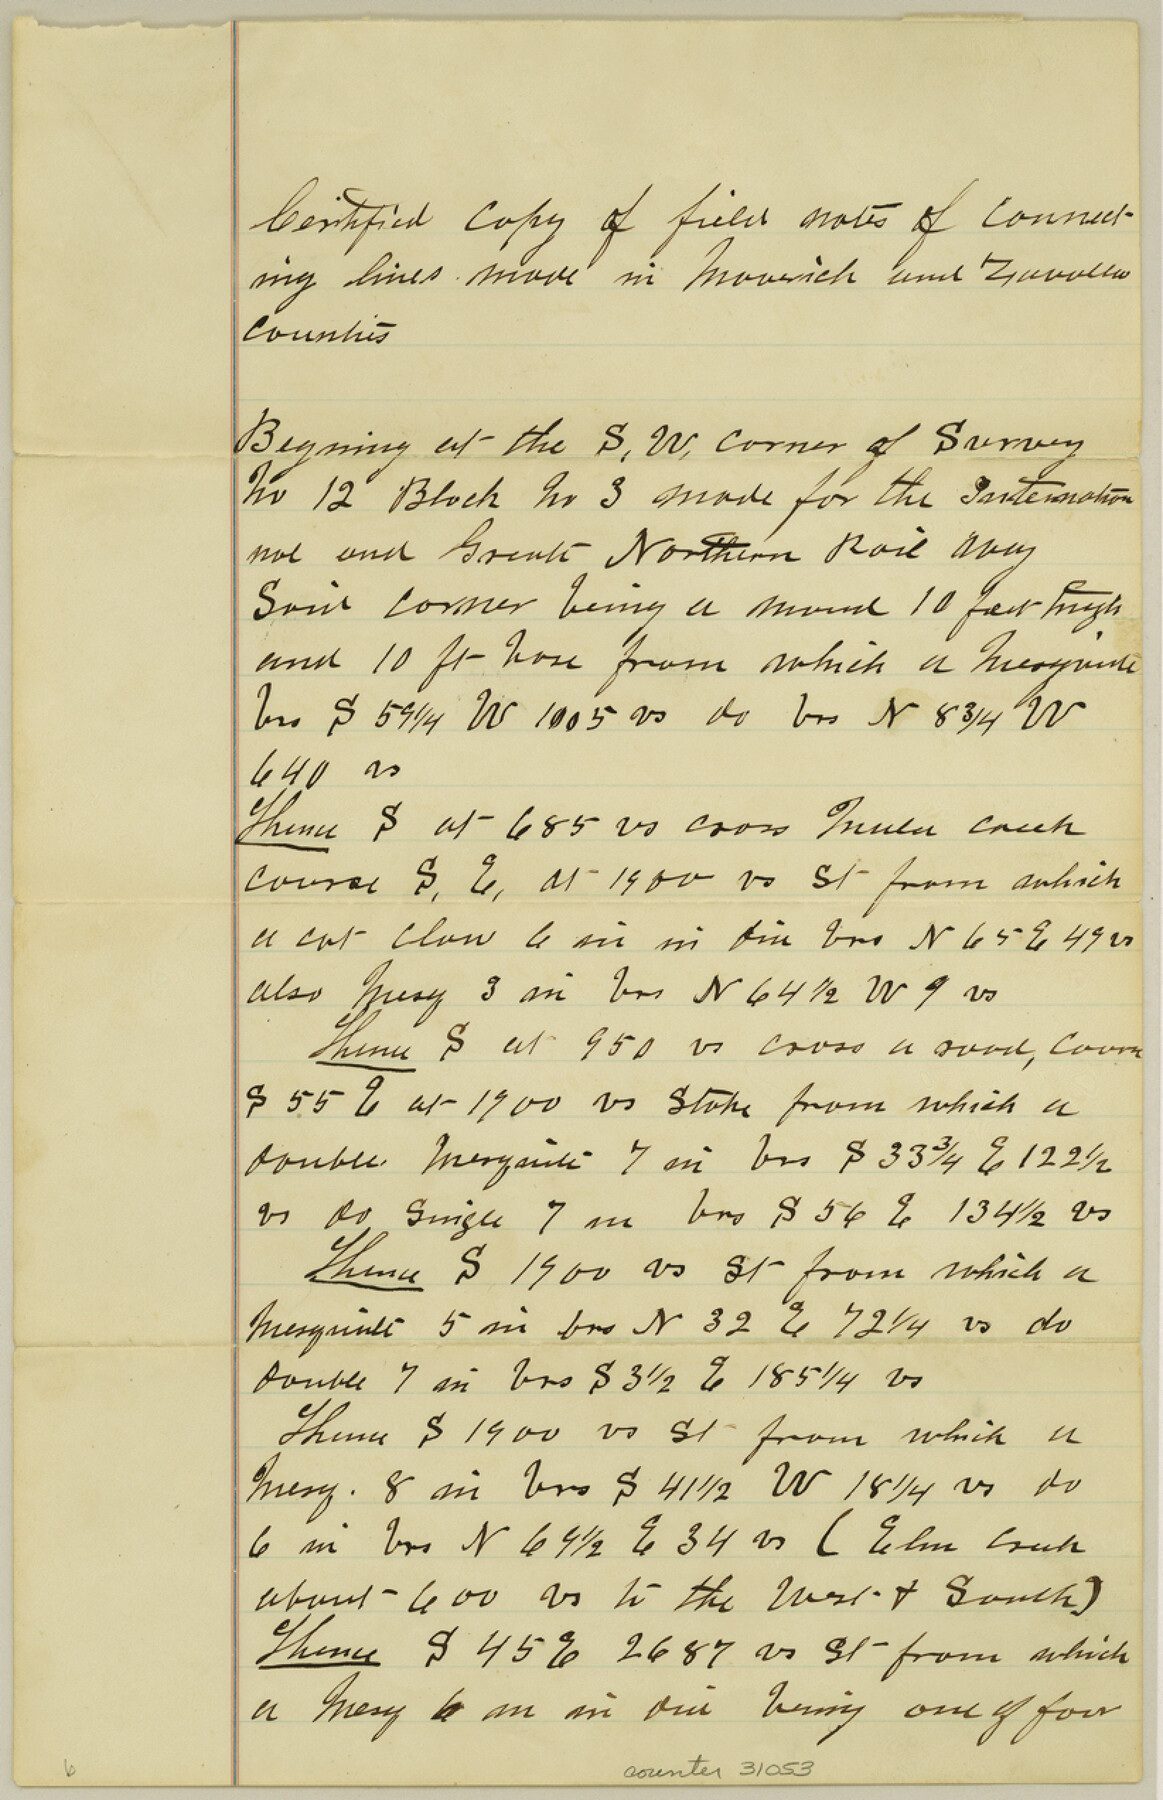 Certified copy of field notes of connect-
ing lines made in Maverick and Zavalla
counties
Begning at the S, W, corner of Survey
No 12 Block No 3 made for the Internation
nal and Great Northern Rail Way
Said corner being a mound 10 feet high
and 10 ft base from which a Mesquite
brs S 59 1/4 W 1005 vs do brs N 8 3/4 W
640 vs
Thence S at 685 vs cross Mula creek
course S, E, at 1900 vs St from which
a cat claw 6 in in dia brs N 65 E 49 vs
also Mesq 3 in brs N 64 1/2 W 9 vs
Thence S at 950 vs cross a road, course
S 55 E at 1900 vs Stake from which a
double Mesquite 7 in brs S 33 3/4 E 122 1/2
vs do Single 7 in brs S 56 E 134 1/2 vs
Thence S 1900 vs St from which a
Mesquite 5 in brs N 32 E 72 1/4 vs do
double 7 in brs S 3 1/2 E 185 1/4 vs
Thence S 1900 vs St from which a
Mesq. 8 in brs S 41 1/2 W 18 1/4 vs do
6 in brs N 69 1/2 E 34 vs ( Elm creek
about 600 vs to the West & South)
Thence S 45 E 2687 vs St from which
a Mesq 6 in in dia being one of four
6 counter 31053